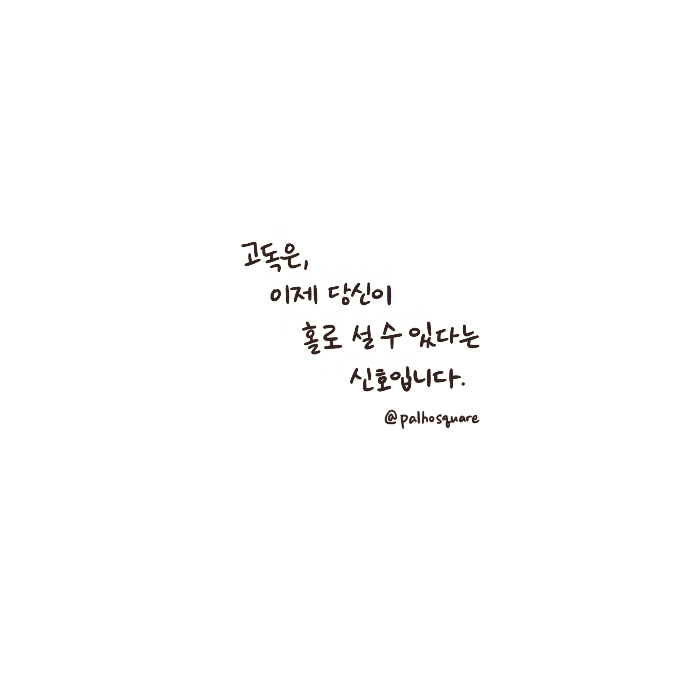 고독은,
이제 당신이
홀로 설 수 있다는
신호입니다.
@palhosquare